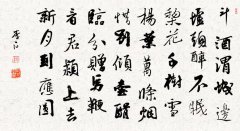 斗酒渭城邊
壚頭醉不眠
梨花千樹雪
楊葉萬條烟
惜別傾壺醑
臨分贈馬鞭
看君潁上去
新月到應圓